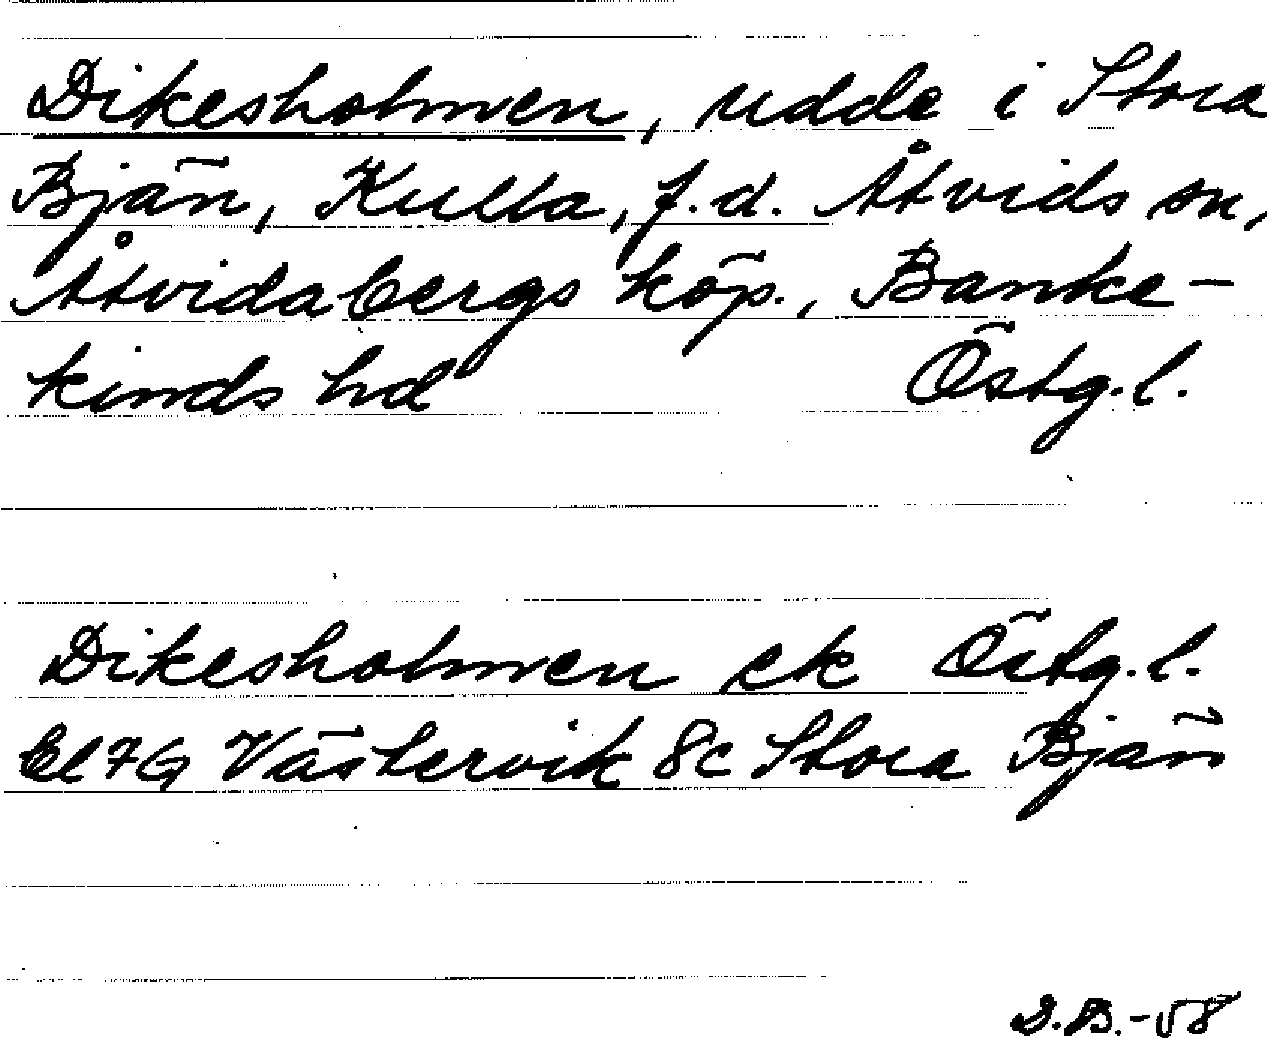 Dikesholmen, udde i Stora
Bjän, Kulla, f.d. Åtvids sn,
Åtvidabergs köp., Banke-
kinds hd Östg.l.
Dikesholmen ek Östg.l.
Bl 7G Västervik 8c Stora Bjän
D.B.-58